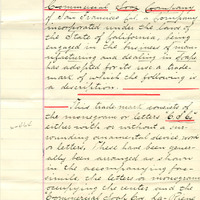 Commercial Soap Company
of San Francisco Cal. a Company
incorporated under the laws of
the State of California, being
engaged in the business of man-
ufacturing and dealing in Soaps
has adopted for its use a trade
mark of which the following is
a description.
This trade mark consists of
the monogram or letters
either with or without a sur-
rounding ornamental device work
or letters. These have been gener-
ally been arranged as shown
in the accompanying fac-
simile the letters or monogram
occupying the center and the
Commercial Soap Co.